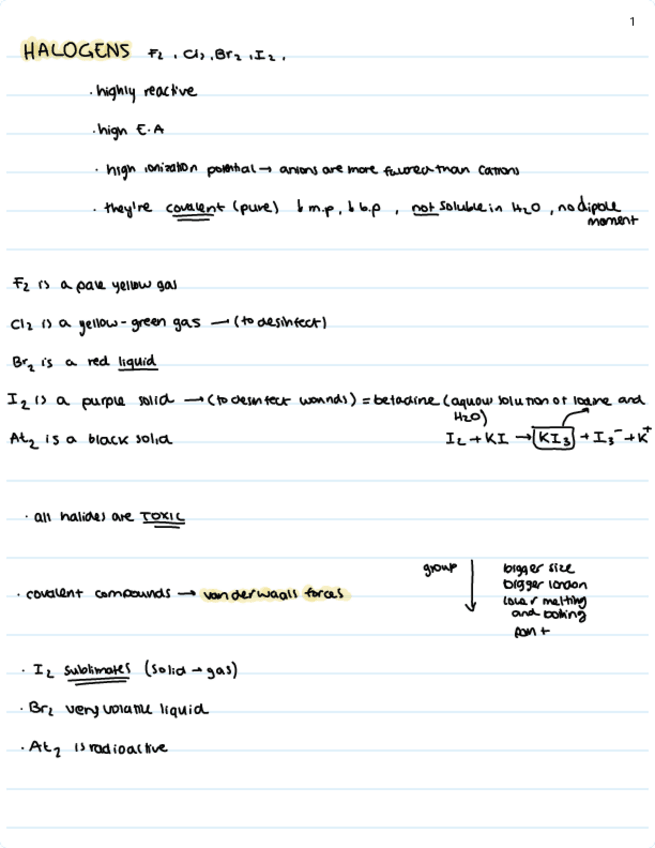 1
HALOGENS F2, Cl2, Br2, I2,
· highly reactive
· high E.A
· high ionization potential → anions are more favored than cations
· they're covalent (pure) ↓ m.p, ↓ b.p, not soluble in H2O, no dipole
moment
F2 is a pale yellow gas
Cl2 is a yellow-green gas → (to desinfect)
Br2 is a red liquid
I2 is a purple solid → (to desinfect wounds) = betadine (aquow solution of iodine and
H2O)
At2 is a black solid I2 + KI → KI3 → I3⁻ + K⁺
· all halides are TOXIC
group ↓ bigger size
bigger london
· covalent compounds → van der waals forces lower melting
and boiling
point
· I2 sublimates (solid → gas)
· Br2 very volatile liquid
· At2 is radioactive